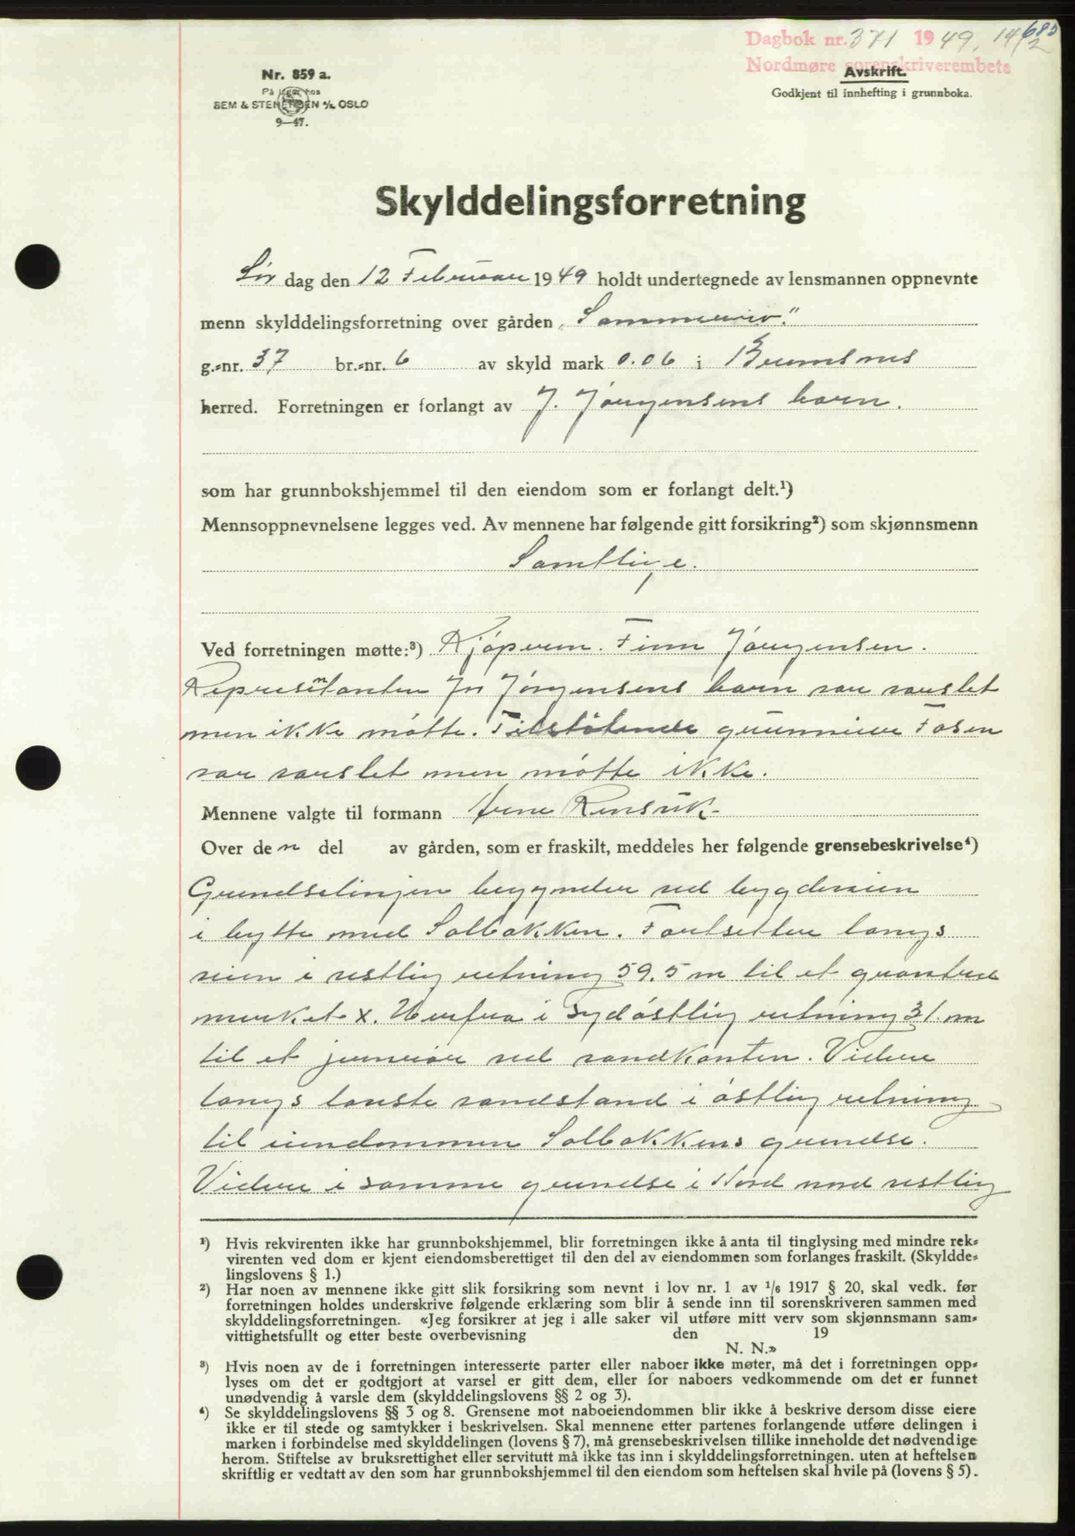 685
Dagbok nr. 371 1949. 14/2
Nordmøre sorenskriverembete
Avskrift.
Godkjent til innhefting i grunnboka.
Nr. 859 a.
På lager hos
SEM & STENERSEN A/S, OSLO
9—47.
Skylddelingsforretning
Lør dag den 12 Februar 1949 holdt undertegnede av lensmannen oppnevnte
menn skylddelingsforretning over gården „Sommerro."
g.-nr. 37 br.-nr. 6 av skyld mark 0.06 i Bremsnes
herred. Forretningen er forlangt av J. Jørgensens barn.
som har grunnbokshjemmel til den eiendom som er forlangt delt.¹)
Mennsoppnevnelsene legges ved. Av mennene har følgende gitt forsikring²) som skjønnsmenn
Samtlige.
Ved forretningen møtte:³) Kjøperen. Finn Jørgensen.
Representanten for Jørgensens barn var varslet
men ikke møtte. Tilstøtende grunneier Fosen
var varslet men møtte ikke.
Mennene valgte til formann Arne Rensvik.
Over den del av gården, som er fraskilt, meddeles her følgende grensebeskrivelse⁴)
Grenselinjen begynder ved bygdeveien
i bytte med Solbakken. Fortsetter langs
veien i vestlig retning 59.5 m til et
merket x. Herfra i sydøstlig retning 31 m
til et ved sandkanten. Videre
langs sandstand i østlig retning
til eiendommen Solbakkens grense.
Videre i samme grense i Nord nord vestlig
¹) Hvis rekvirenten ikke har grunnbokshjemmel, blir forretningen ikke å anta til tinglysing med mindre rek-
virenten ved dom er kjent eiendomsberettiget til den del av eiendommen som forlanges fraskilt. (Skyldde-
lingslovens § 1.)
²) Har noen av mennene ikke gitt slik forsikring som nevnt i lov nr. 1 av 1/6 1917 § 20, skal vedk. før
forretningen holdes underskrive følgende erklæring som blir å sende inn til sorenskriveren sammen med
skylddelingsforretningen. «Jeg forsikrer at jeg i alle saker vil utføre mitt verv som skjønnsmann sam-
vittighetsfullt og etter beste overbevisning den 19
N. N.»
³) Hvis noen av de i forretningen interesserte parter eller naboer ikke møter, må det i forretningen opp-
lyses om det er godtgjort at varsel er gitt dem, eller for naboers vedkommende om det er funnet
unødvendig å varsle dem (skylddelingslovens §§ 2 og 3).
⁴) Se skylddelingslovens §§ 3 og 8. Grensene mot naboeiendommen blir ikke å beskrive dersom disse eiere
ikke er til stede og samtykker i beskrivelsen. Skal mennene etter partenes forlangende utføre delingen i
marken i forbindelse med skylddelingen (lovens § 7), må grensebeskrivelsen tillike inneholde det nødvendige
herom. Stiftelse av bruksrettighet eller servitutt må ikke tas inn i skylddelingsforretningen. uten at heftelsen
skriftlig er vedtatt av den som har grunnbokshjemmel til den eiendom som heftelsen skal hvile på (lovens § 5).